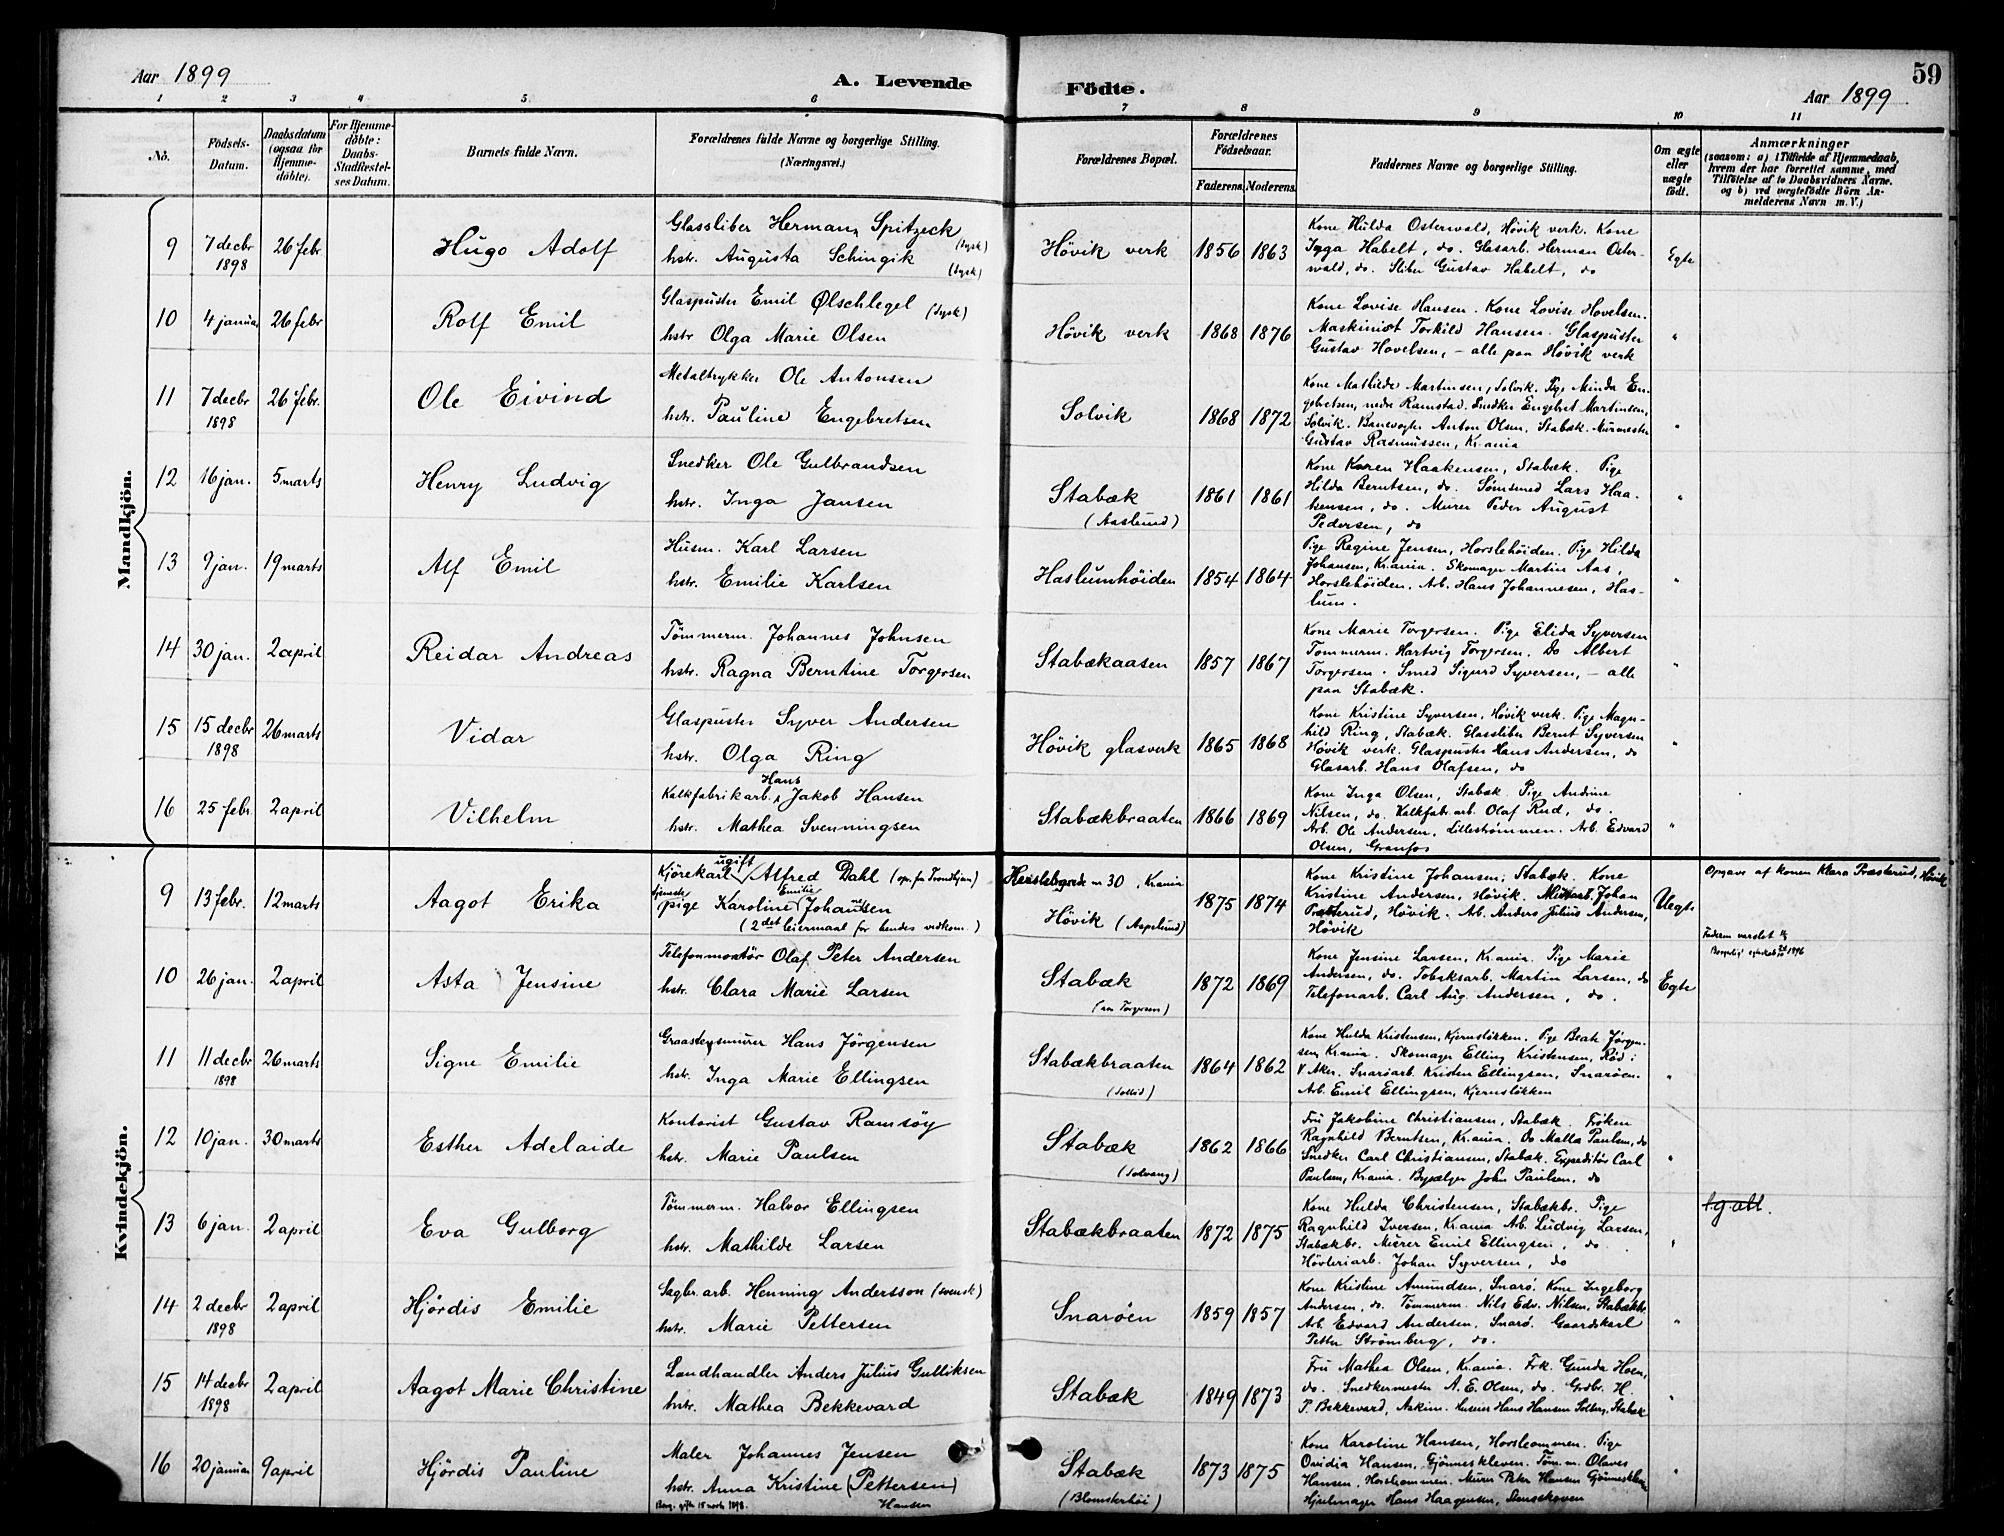 Aar 1899
A. Levende Födte.
59
Aar 1899
1 2 3 4 5. 6 7 8 9 10 11
No.
Födsels-Datum.
Daabsdatum (ogsaa for Hjemmedöbte).
For Hjemmedöbte: Daabs-Stadfæstelses Datum.
Barnets fulde Navn.
Forældrenes fulde Navne og borgerlige Stilling. (Næringsvei.)
Forældrenes Bopæl.
Forældrenes Födselsaar.
Faderens. Moderens.
Faddernes Navne og borgerlige Stilling.
Om ægte eller uægte födt.
Anmærkninger
(saasom: a) i Tilfælde af Hjemmedaab,
hvem der har forrettet samme, med
Tilföielse af to Daabsvidners Navne.
og b) ved uægtefödte Börn An-
melderens Navn m. V.)
Mandkjön.
9 7 decbr 1898 26 febr. Hugo Adolf
Glassliber Herman Spitzeck (tysk)
hstr. Augusta Schingik (tysk)
Høvik verk 1856 1863
Kone Hulda Osterwald, Høvik verk. Kone
Habelt, do. Glasarb. Herman Oster-
wald, do. Sliber Gustav Habelt, do
Egte
10 4 januar 26 febr Rolf Emil
Glaspuster Emil Ølschlegel (tysk)
hstr Olga Marie Olsen
Høvik verk 1868 1876
Kone Lovise Hansen. Kone Lovise Hovelsen.
Maskinist Torkild Hansen. Glaspuster
Gustav Hovelsen, - alle paa Høvik verk
"
11 7 decbr 1898 26 febr. Ole Eivind
Metaltrykker Ole Antonsen
hstr. Pauline Engebretsen
Solvik 1868 1872
Kone Mathilde Martinsen, Solvik. Pige Minda En-
gebretsen, nedre Ramstad. Snedker Engebret Martinsen,
Solvik. Banevogter Anton Olsen, Stabæk. Murmester
Gustav Rasmussen, Kr.ania
"
12 16 jan. 5 marts Henry Ludvig
Snedker Ole Gulbrandsen
hstr. Inga Jansen
Stabæk (Aaslund) 1861 1861
Kone Karen Haakensen, Stabæk. Pige
Hilda Berntsen, do. Sømsmed Lars Haa-
kensen, do. Murer Peder August
Pedersen, do
"
13 9 jan. 19 marts Alf Emil
Husm. Karl Larsen
hstr. Emilie Karlsen
Haslumhöiden 1854 1864
Pige Regine Jensen, Horslehöiden. Pige Hilda
Johansen, Kr.ania. Skomager Martin Aas,
Horslehöiden. Arb. Hans Johannesen, Has-
lum.
"
14 30 jan. 2 april Reidar Andreas
Tömmerm. Johannes Johnsen
hstr. Ragna Berntine Torgersen
Stabækaasen 1857 1867
Kone Marie Torgersen. Pige Elida Syversen
Tömmerm. Hartvig Torgersen. Do Albert
Torgersen. Smed Sigurd Syversen, - alle
paa Stabæk.
"
15 15 decbr 1898 26 marts Vidar
Glaspuster Syver Andersen
hstr. Olga Ring
Høvik glasverk 1865 1868
Kone Kristine Syversen, Høvik verk. Pige Magn-
hild Ring, Stabæk. Glassliber Bernt Syversen
Høvik verk. Glaspuster Hans Andersen, do
Glasarb. Hans Olafsen, do
"
16 25 febr. 2 april Vilhelm
Kalkfabrikarb. Hans Jakob Hansen
hstr. Mathea Svenningsen
Stabækbraaten 1866 1869
Kone Inga Olsen, Stabæk. Pige Andine
Nilsen, do. Kalkfabr.arb. Olaf Rud, do.
Arb. Ole Andersen, Lillestrømmen. Arb. Edvard
Olsen, Granfos
"
Kvindekjön.
9 13 febr. 12 marts Aagot Erika
Kjörekarl ugift Alfred Dahl (opr. fra Trondhjem)
tjenestepige Karoline Emilie Johansen
(2det leiermaal for hendes vedkom.)
nr 30, Kr.ania
Høvik (Aspelund)
1875 1874
Kone Kristine Johansen, Stabæk. Kone
Kristine Andersen, Høvik. Johan
Præsterud, Høvik. Arb. Anders Julius Andersen,
Høvik
Uegte
Opgave af konen Klara Præsterud, Høvik
Faderen varslet
10 26 jan. 2 april Asta Jensine
Telefonmontör Olaf Peter Andersen
hstr. Clara Marie Larsen
Stabæk (hos Torgersen) 1872 1869
Kone Jensine Larsen, Kr.ania. Pige Marie
Andersen, do. Tobaksarb. Martin Larsen, do
Telefonarb. Carl Aug. Andersen, do.
Egte
11 11 decbr 1898 26 marts Signe Emilie
Graastensmurer Hans Jörgensen
hstr. Inga Marie Ellingsen
Stabækbraaten 1864 1862
Kone Hulda Kristensen, Kjernsløkken. Pige Beate Jörgen-
sen, Kr.ania. Skomager Elling Kristensen, Röd i
V. Aker. Snaröarb. Kristen Ellingsen, Snaröen.
Arb. Emil Ellingsen, Kjernsløkken
"
12 10 jan. 30 marts Esther Adelaide
Kontorist Gustav Ramsöy
hstr. Marie Paulsen
Stabæk (Solvang) 1862 1866
Fru Jakobine Christiansen, Stabæk. Fröken
Ragnhild Berntsen, Kr.ania. Do Malla Paulsen, do
Snedker Carl Christiansen, Stabæk. Expeditör Carl
Paulsen, Kr.ania. John Paulsen, do
"
13 6 jan. 2 april Eva Gulborg
Tömmerm. Halvor Ellingsen
hstr. Mathilde Larsen
Stabækbraaten 1872 1875
Kone Hulda Christensen, Stabækbr. Pige
Ragnhild Iversen, Kr.ania Arb. Ludvig Larsen,
Stabækbr. Murer Emil Ellingsen, do
Hövleriarb. Johan Syversen, do
"
14 2 decbr 1898 2 april Hjördis Emilie
Sagbr. arb. Henning Andersson (svensk)
hstr. Marie Pettersen
Snaröen 1859 1857
Kone Kristine Amundsen, Snarö. Kone Ingeborg
Andersen, do. Tömmerm. Nils Edv. Nilsen, Stabækbr.
Arb. Edvard Andersen, Snarö. Gaardskarl
Petter Strömberg, do.
"
15 14 decbr 1898 2 april Aagot Marie Christine
Landhandler Anders Julius Gulliksen
hstr. Mathea Bekkevard
Stabæk 1849 1873
Fru Mathea Olsen, Kr.ania. Frk. Gunda Hoen,
do. Snedkermester A. E. Olsen, do. Grdbr. H.
P. Bekkevard, Askim. Huseier Hans Hansen Solberg, Stabæk
"
16 20 januar 9 april Hjördis Pauline
Maler Johannes Jensen
hstr. Anna Kristine (Pettersen) Hansen
Borg. gifte 15 marts 1898.
Stabæk (Blomsterhöi) 1873 1875
Kone Karoline Hansen, Horsleommen. Pige
Ovidia Hansen, Gjönneskleven. Töm.m. Olaves
Hansen, Horsleommen. Murer Peter Hansen Gjönneskleven
Hjulmager Hans Haagensen, Stensskoven
"